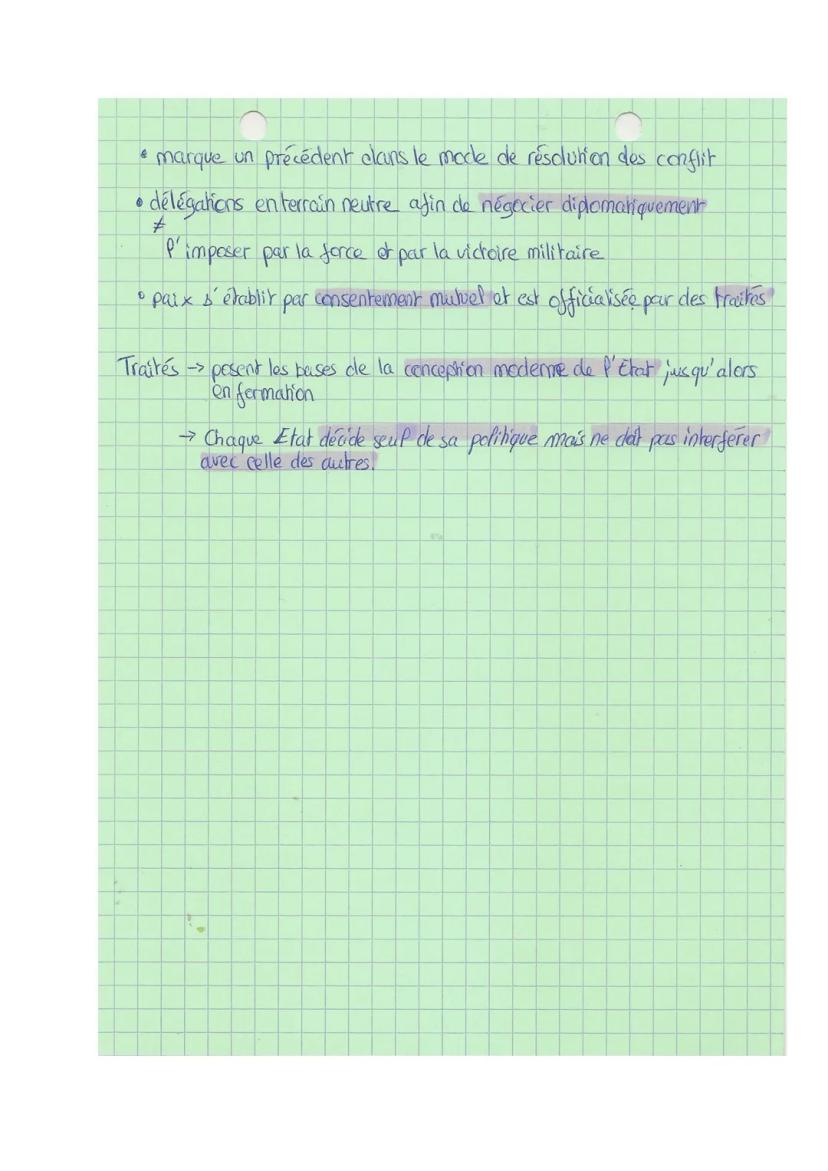 • marque un précédent dans le mode de résolution des conflit
• délégations en terrain neutre afin de négocier diplomatiquement
≠
l'imposer par la force et par la victoire militaire
• paix s'établir par consentement mutuel et est officialisée par des traités
Traités → posent les bases de la conception moderne de l'Etat jusqu'alors
en formation
→ Chaque Etat décide seul de sa politique mais ne doit pas interférer
avec celle des autres.